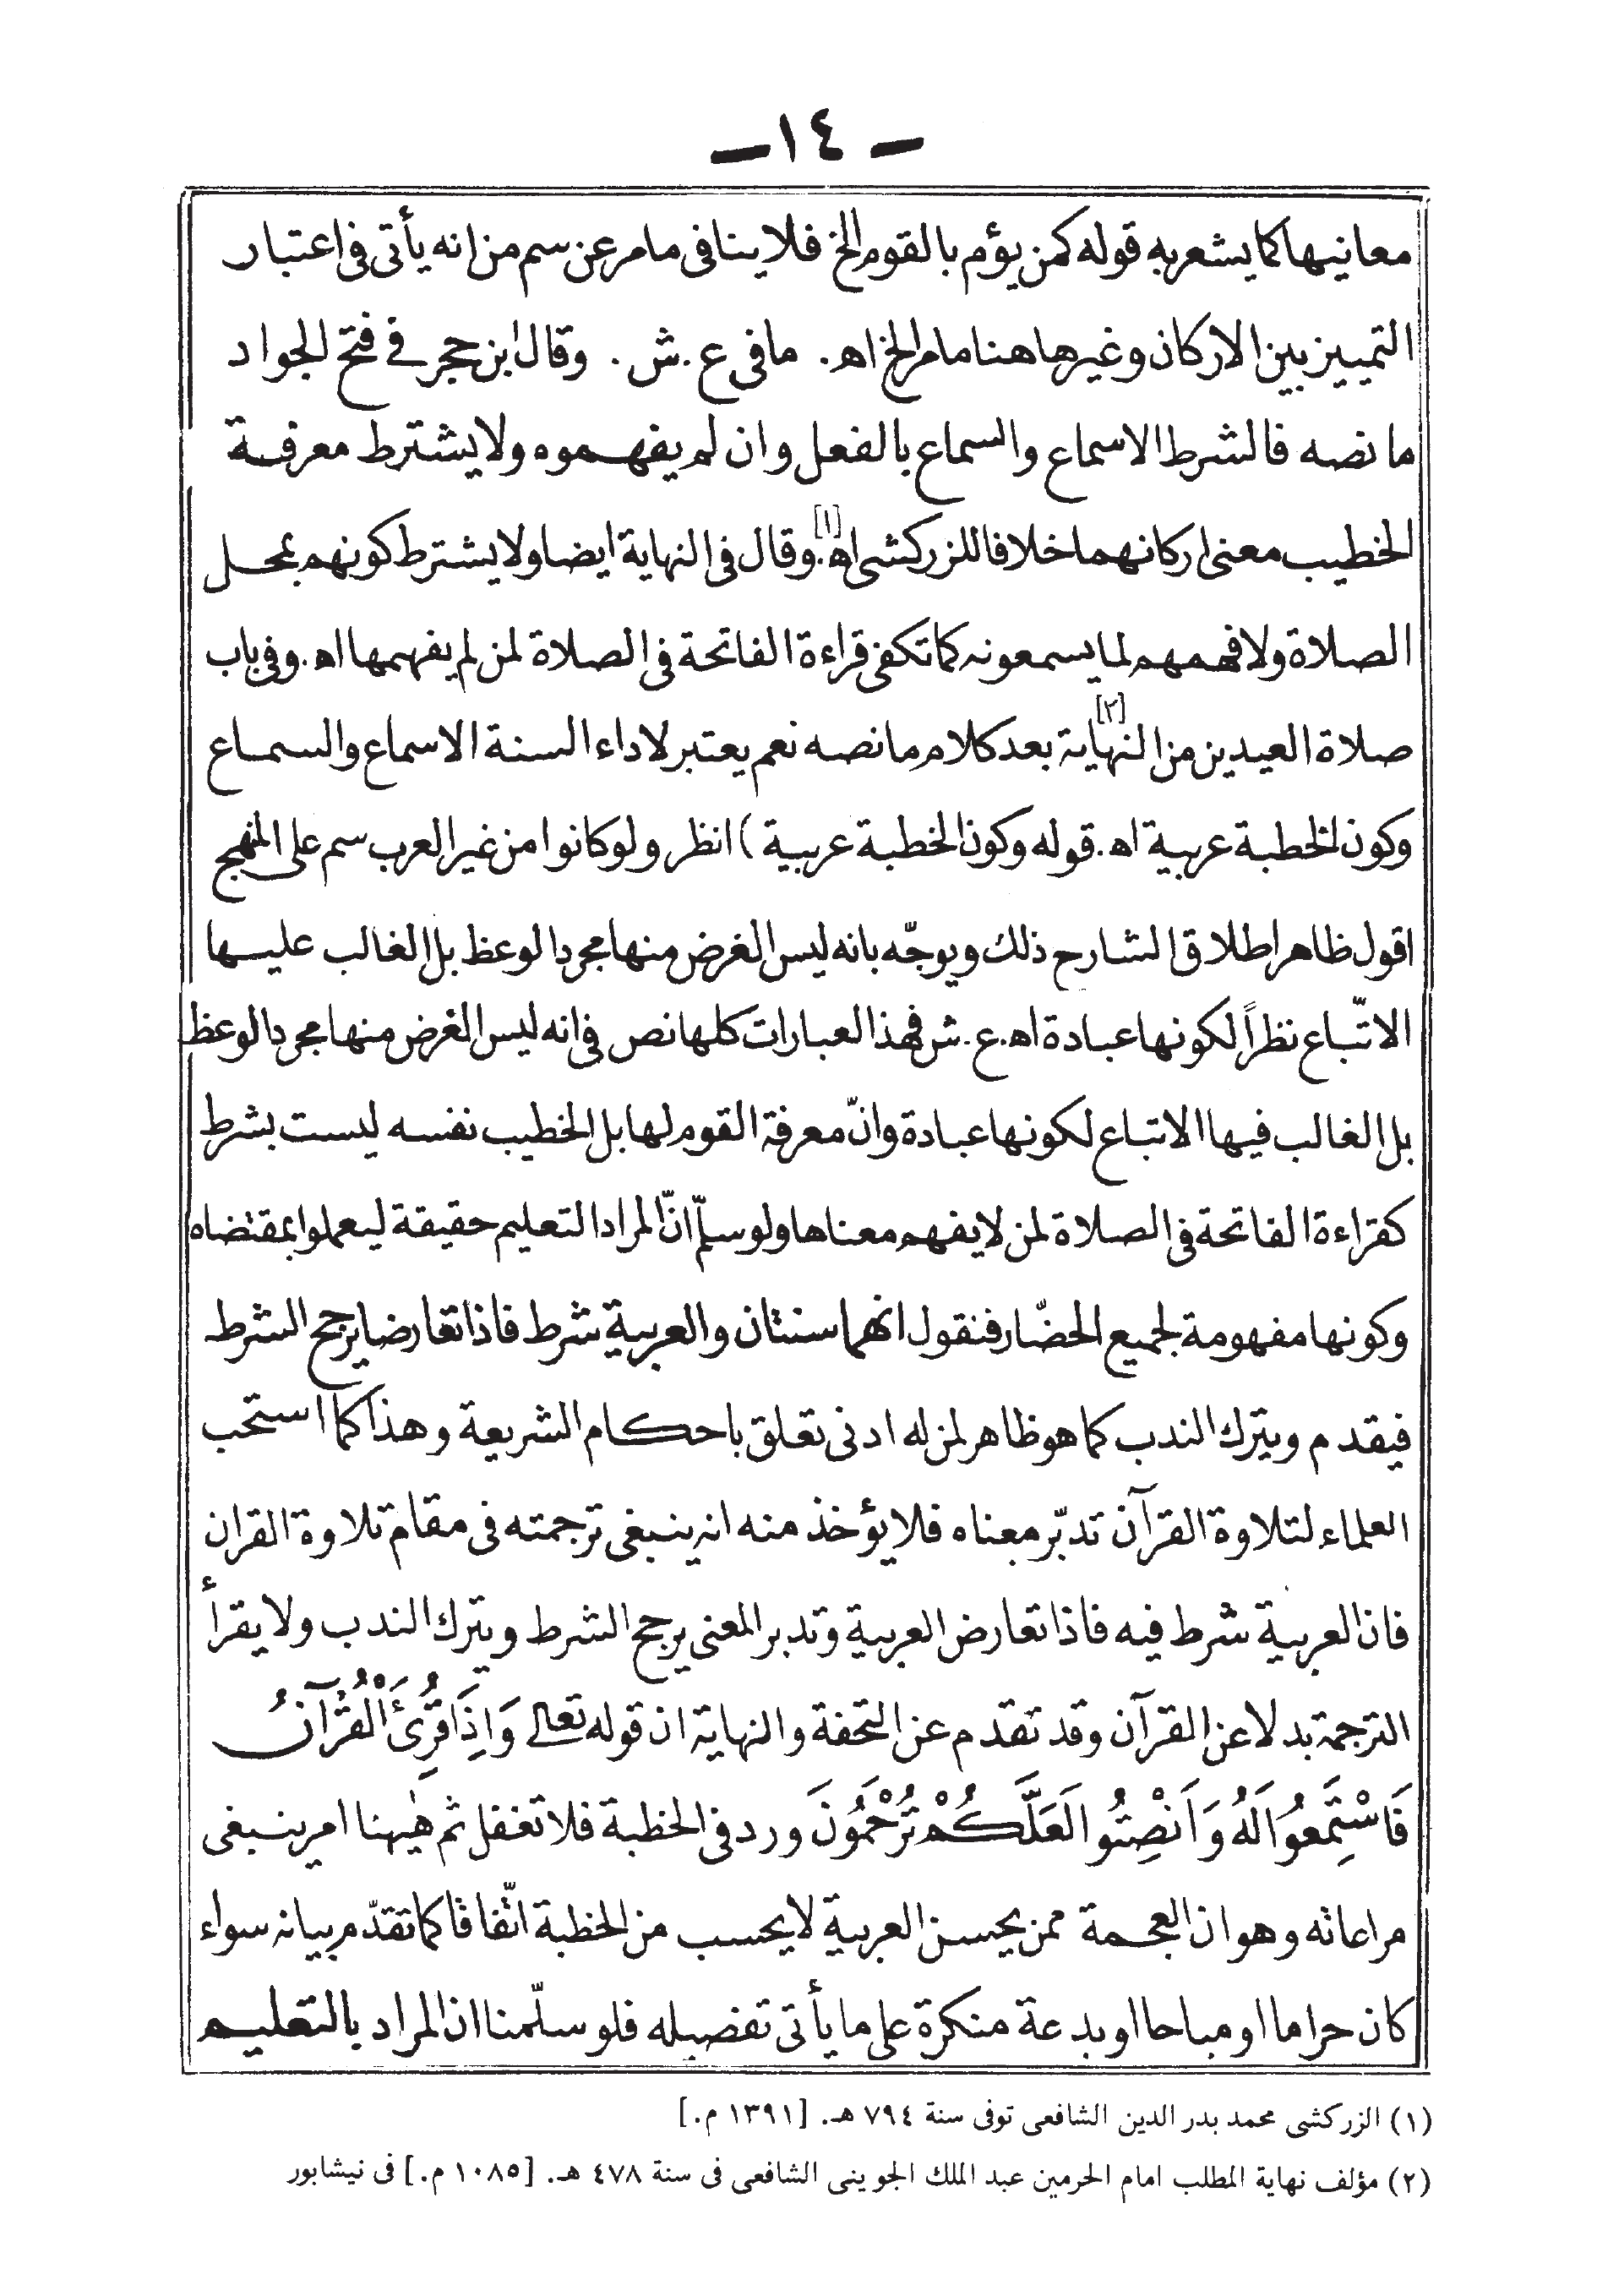 — ١٤ —
معانيها كما يشعر به قوله كمن يؤم بالقوم الخ فلا ينافى ما مر عن سم من انه يأتى فى اعتبار
التمييز بين الاركان وغيرها هنا ما مر الخ اه. ما فى ع.ش. وقال ابن حجر فى فتح الجواد
ما نصه فالشرط الاسماع والسماع بالفعل وان لم يفهموه ولا يشترط معرفة
الخطيب معنى اركانهما خلافا للزركشى اه.[١] وقال فى النهاية ايضا ولا يشترط كونهم بمحل
الصلاة ولا فهمهم لما يسمعونه كما تكفى قراءة الفاتحة فى الصلاة لمن لم يفهمها اه. وفى باب
صلاة العيدين من النهاية[٢] بعد كلام ما نصه نعم يعتبر لاداء السنة الاسماع والسماع
وكون الخطبة عربية اه. قوله وكون الخطبة عربية) انظر ولو كانوا من غير العرب سم على المنهج
اقول ظاهر اطلاق الشارح ذلك ويوجّه بانه ليس الغرض منها مجرد الوعظ بل الغالب عليها
الاتّباع نظراً لكونها عبادة اه. ع.ش فهذا العبارات كلها نص فى انه ليس الغرض منها مجرد الوعظ
بل الغالب فيها الاتباع لكونها عبادة وانّ معرفة القوم لها بل الخطيب نفسه ليست بشرط
كقراءة الفاتحة فى الصلاة لمن لا يفهم معناها ولو سلّم انّ المراد التعليم حقيقة ليعملوا بمقتضاه
وكونها مفهومة لجميع الحضّار فنقول انهما سنتان والعربية شرط فاذا تعارضا يرجح الشرط
فيقدم ويترك الندب كما هو ظاهر لمن له ادنى تعلق باحكام الشريعة وهذا كما استحب
العلماء لتلاوة القرآن تدبّر معناه فلا يؤخذ منه انه ينبغى ترجمته فى مقام تلاوة القران
فان العربية شرط فيه فاذا تعارض العربية وتدبر المعنى يرجح الشرط ويترك الندب ولا يقرأ
الترجمة بدلا عن القرآن وقد تقدم عن التحفة والنهاية ان قوله تعالى وَاِذَا قُرِئَ الْقُرْآنُ
فَاسْتَمِعُوا لَهُ وَاَنْصِتُوا لَعَلَّكُمْ تُرْحَمُونَ ورد فى الخطبة فلا تغفل ثم هٰيهنا امر ينبغى
مراعاته وهو ان العجمة ممن يحسن العربية لا يحسب من الخطبة اتّفاقا كما تقدّم بيانه سواء
كان حراما او مباحا او بدعة منكرة على ما يأتى تفصيله فلو سلّمنا ان المراد بالتعليم
(١) الزركشى محمد بدر الدين الشافعى توفى سنة ٧٩٤ هـ. [١٣٩١ م.]
(٢) مؤلف نهاية المطلب امام الحرمين عبد الملك الجوينى الشافعى فى سنة ٤٧٨ هـ. [١٠٨٥ م.] فى نيشابور